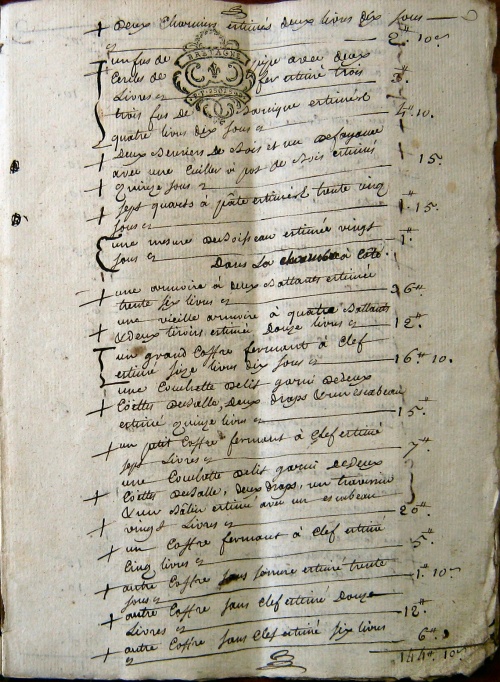 + deux Charnier estimés deux livres dix sous
2# 10s
BRETAGNE
un fus de pipe avec deux
Cercles de fer estimé trois
Livres 3#
trois fus de Barique estimés
quatre livres dix sous 4# 10.
+ deux de Bois et un de fayance
avec une Cuiller à pot de Bois estimés
+ quinze sous 15.
+ sept quarts à pâte estimés trente cinq
sous 1# 15.
une mesure de Boisseau estimée vingt
sous 1#
Dans La chambre à Côté
+ une armoire à deux Battants estimée
trente six livres 36#
une vieille armoire à quatre Battants
+ & deux tiroirs estimée douze livres 12#
un grand Coffre fermant à Clef
estimé seize livres dix sous 16# 10.
une Couchette de lit garni de deux
+ Coëttes de Balle, deux draps & un escabeau
estimé quinze livres 15#
+ un petit Coffre fermant à Clef estimé
sept Livres 7#
une Couchette de lit garni de deux
+ Coëttes de Balle, deux draps, un traversin
& un estimé avec un escabeau
+ vingt Livres 20#
+ un Coffre fermant à Clef estimé
Cinq livres 5#
+ autre Coffre sans estimé trente
sous 1# 10s
+ autre Coffre sans Clef estimé douze
Livres 12#
+ autre Coffre sans Clef estimé six livres
6#
144# 10s